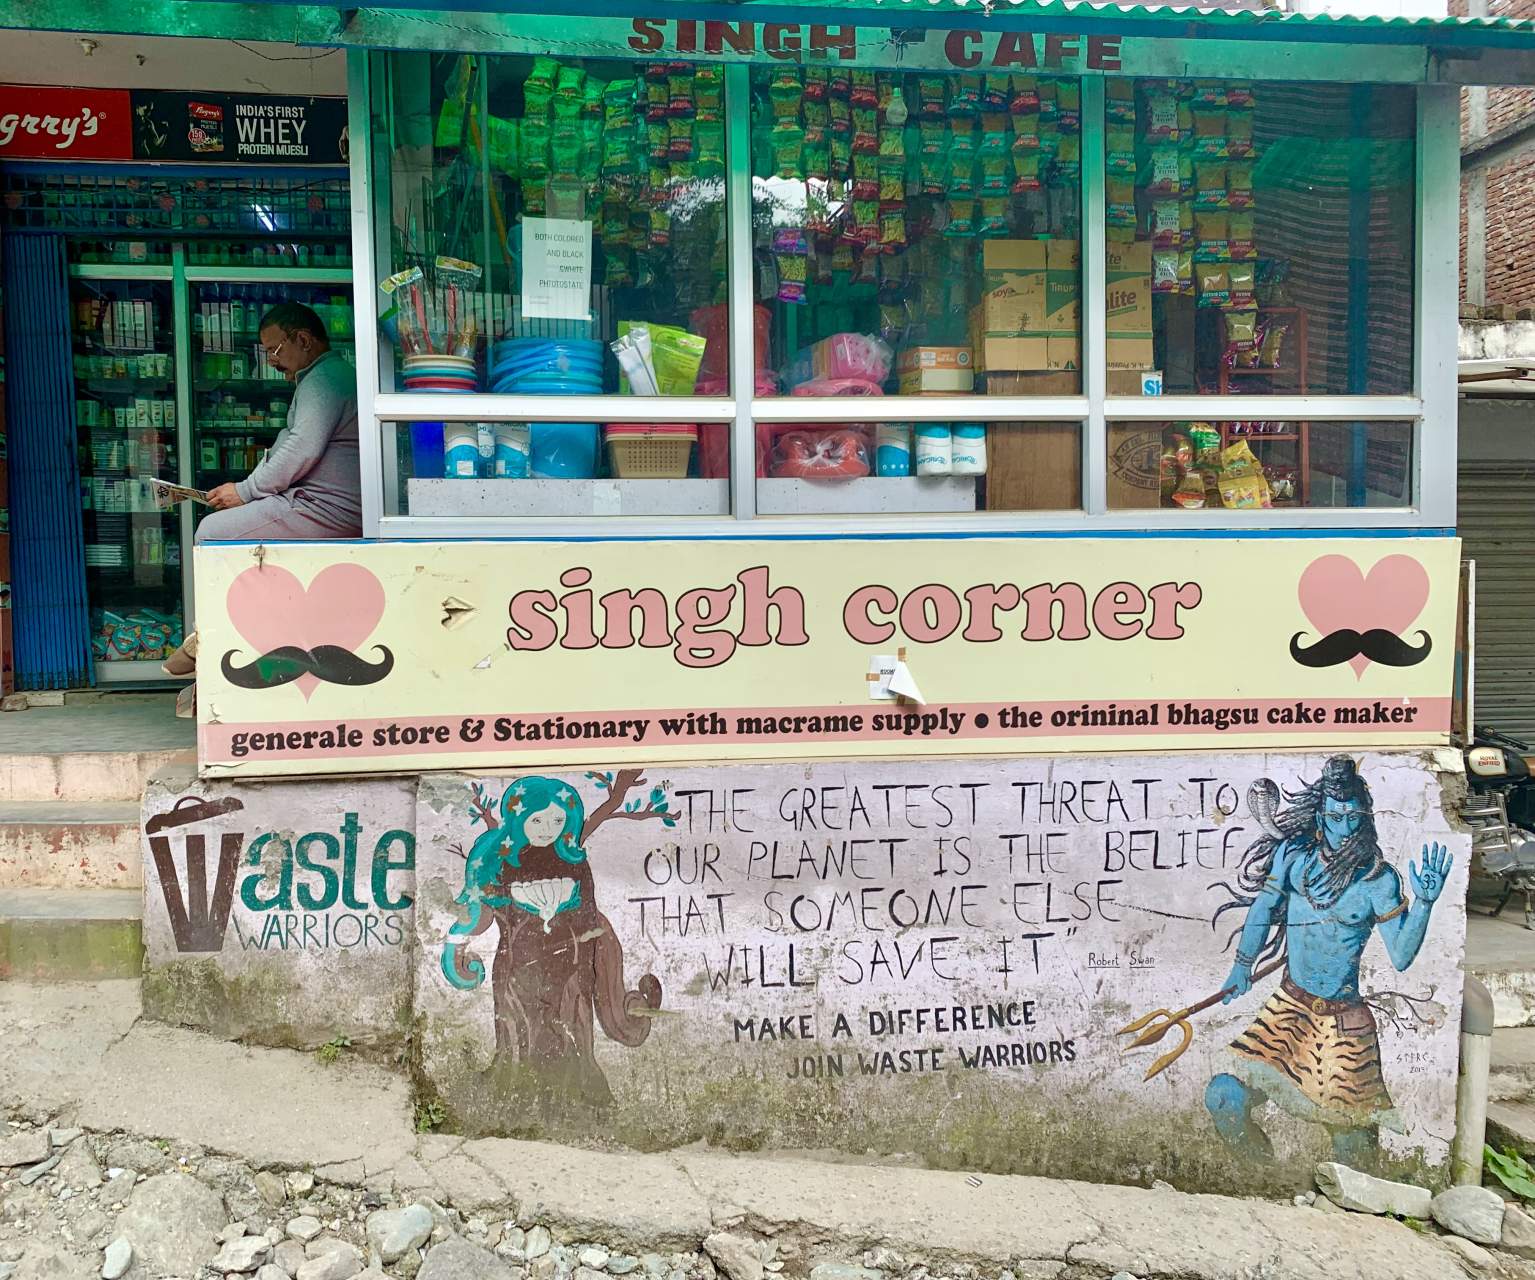 SINGH CAFE
grry's
INDIA'S FIRST
WHEY
PROTEIN MUESLI
BOTH COLORED
AND BLACK
&WHITE
PHTOTOSTATE
singh corner
generale store & Stationary with macrame supply • the orininal bhagsu cake maker
Waste
WARRIORS
"THE GREATEST THREAT TO
OUR PLANET IS THE BELIEF
THAT SOMEONE ELSE
WILL SAVE IT"
Robert Swan
MAKE A DIFFERENCE
JOIN WASTE WARRIORS
ROYAL
ENFIELD